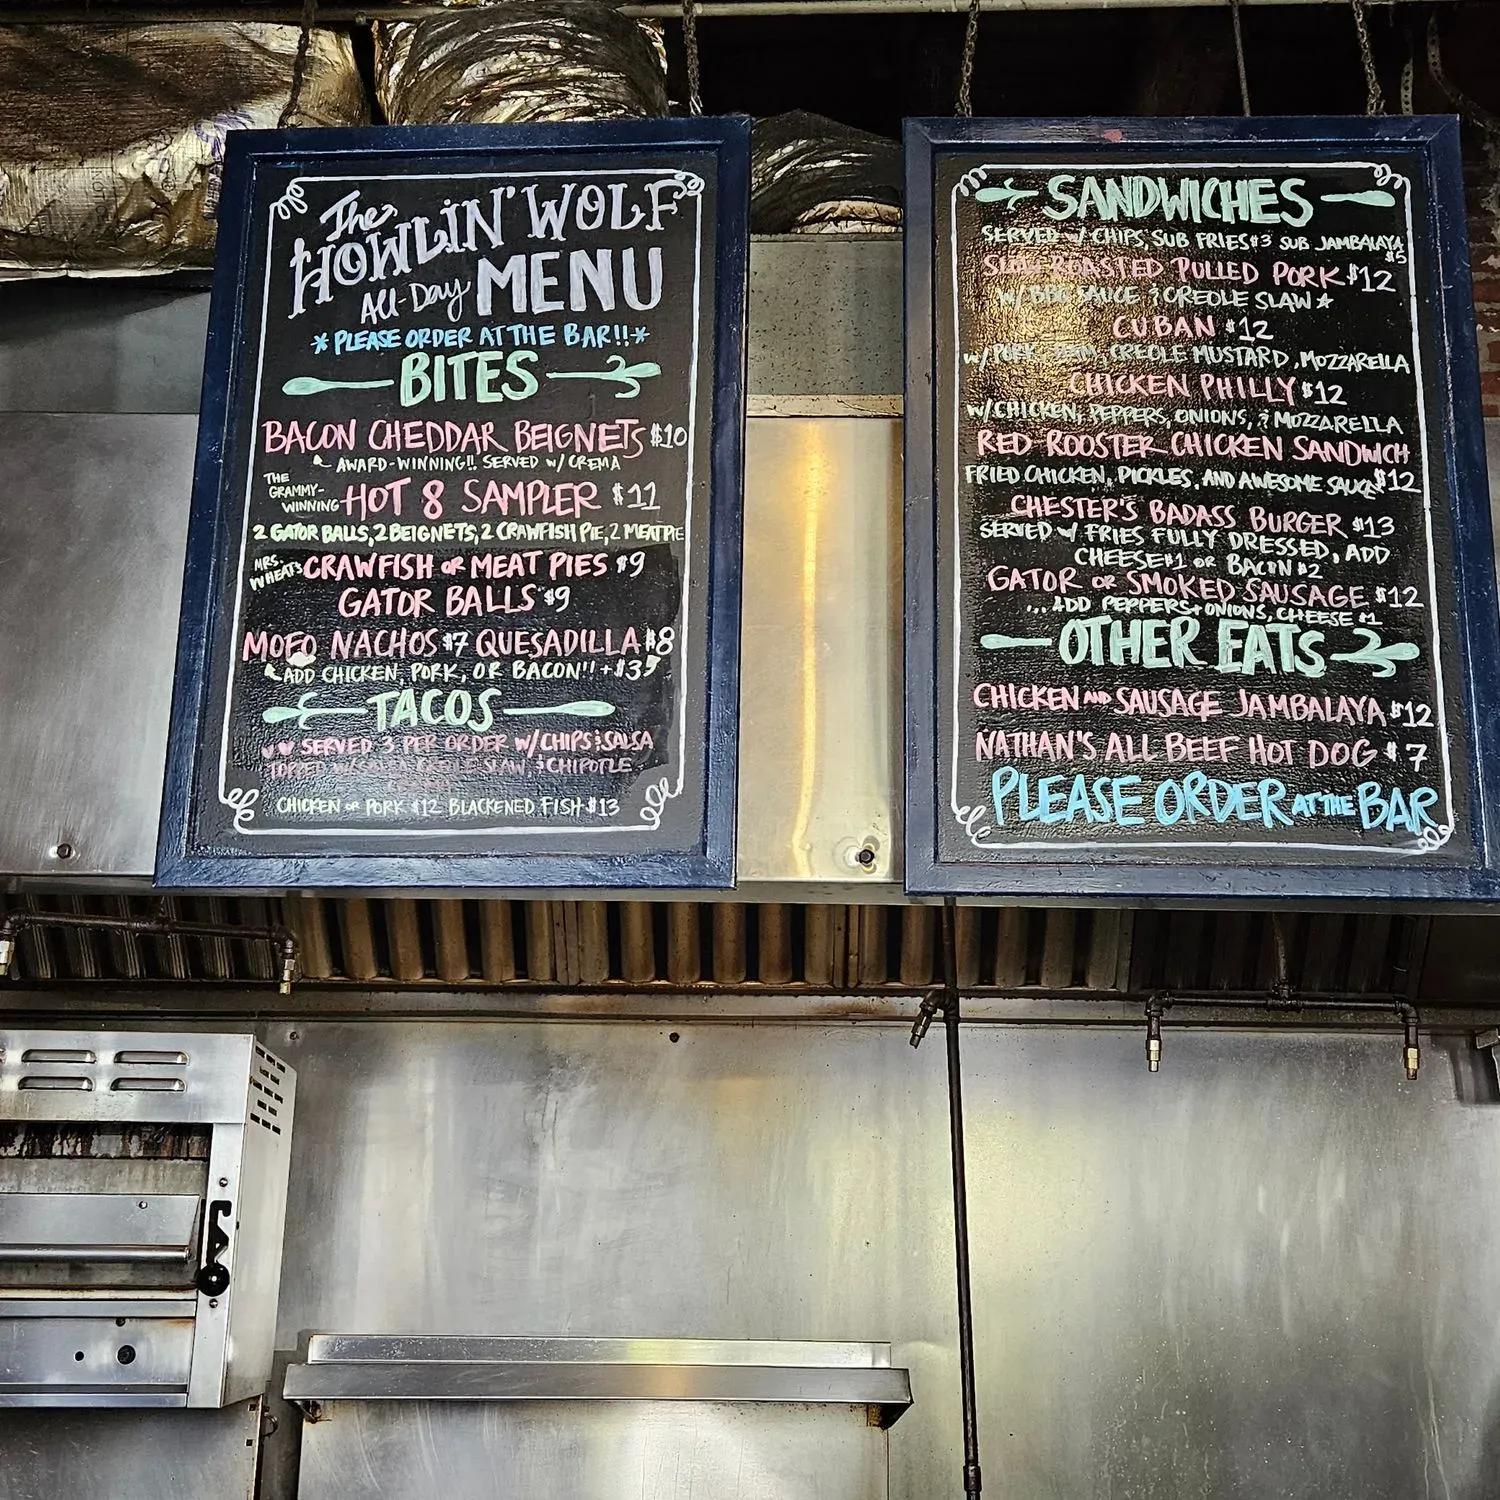 The
HOWLIN' WOLF
All-Day MENU
*PLEASE ORDER AT THE BAR!!*
BITES
BACON CHEDDAR BEIGNETS $10
AWARD-WINNING!! SERVED w/ CREMA
THE GRAMMY-WINNING HOT 8 SAMPLER $11
2 GATOR BALLS, 2 BEIGNETS, 2 CRAWFISH PIE, 2 MEAT PIE
MRS. WHEAT'S CRAWFISH OR MEAT PIES $9
GATOR BALLS $9
MOFO NACHOS $7 QUESADILLA $8
ADD CHICKEN, PORK, OR BACON!! +$3
TACOS
SERVED 3 PER ORDER W/CHIPS & SALSA
TOPPED W/ SLAW, & CHIPOTLE
CHICKEN OR PORK $12 BLACKENED FISH $13
SANDWICHES
SERVED w/ CHIPS, SUB FRIES $3 SUB JAMBALAYA $5
SLOW ROASTED PULLED PORK $12
W/ BBQ SAUCE & CREOLE SLAW ★
CUBAN $12
W/ PORK, HAM, CREOLE MUSTARD, MOZZARELLA
CHICKEN PHILLY $12
W/CHICKEN, PEPPERS, ONIONS, & MOZZARELLA
RED ROOSTER CHICKEN SANDWICH
FRIED CHICKEN, PICKLES, AND AWESOME SAUCE $12
CHESTER'S BADASS BURGER $13
SERVED w/ FRIES FULLY DRESSED, ADD
CHEESE $1 OR BACON $2
GATOR OR SMOKED SAUSAGE $12
...ADD PEPPERS + ONIONS, CHEESE $1
OTHER EATS
CHICKEN AND SAUSAGE JAMBALAYA $12
NATHAN'S ALL BEEF HOT DOG $7
PLEASE ORDER AT THE BAR